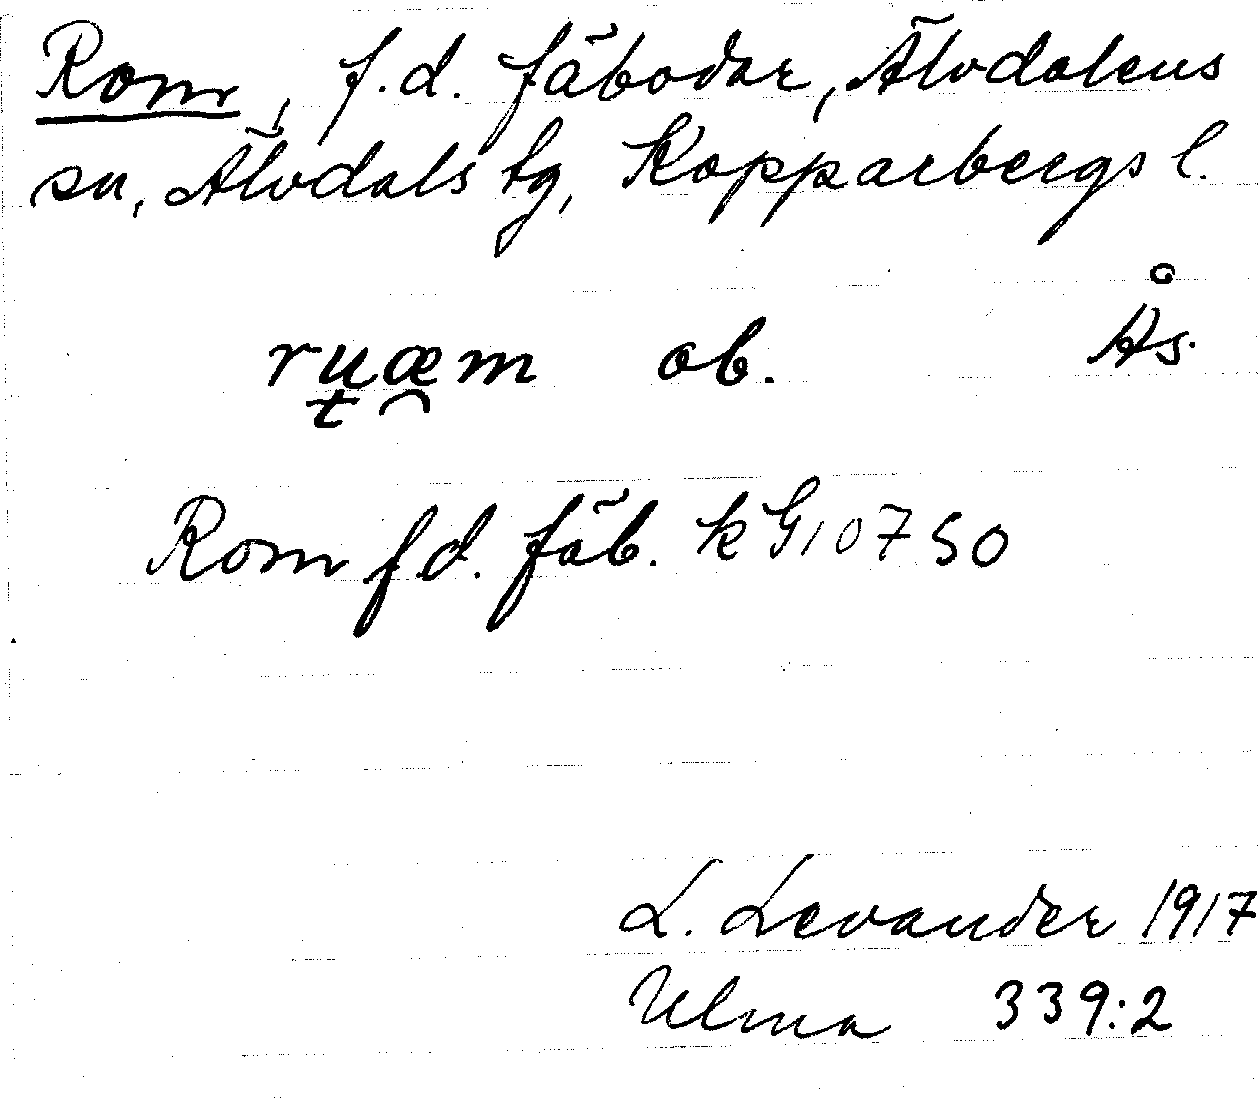 Rom, f.d. fäbodar, Älvdalens
sn, Älvdals tg, Kopparbergs l.
Ås.
ruæm ob.
Rom f.d. fäb. k G10750
L. Levander 1917
Ulma 339:2